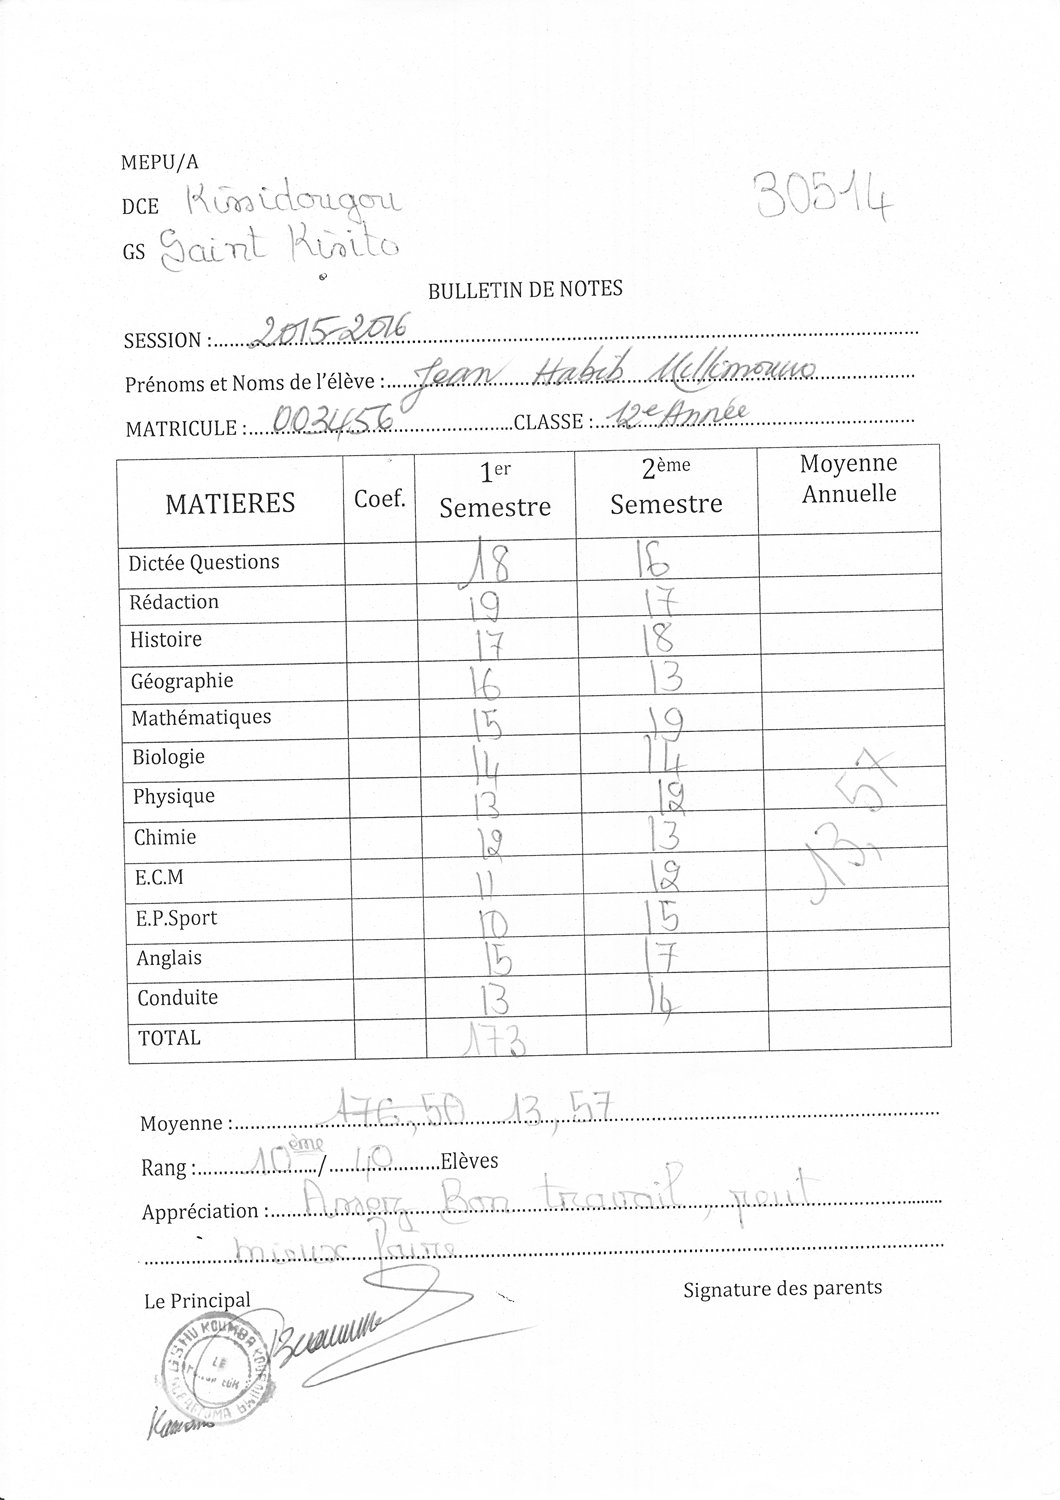 MEPU/A
DCE Kissidougou 30514
GS Saint Kisito
BULLETIN DE NOTES
SESSION :2015-2016
Prénoms et Noms de l'élève : Jean Habib Millimouno
MATRICULE : 003456 CLASSE : 12e Année
MATIERES Coef. 1er Semestre 2ème Semestre Moyenne Annuelle
Dictée Questions 18 16
Rédaction 19 17
Histoire 17 18
Géographie 16 13
Mathématiques 15 19
Biologie 14 14
Physique 13 12
Chimie 12 13
E.C.M 11 12
E.P.Sport 10 15
Anglais 15 17
Conduite 13 14
13,57
TOTAL 173
Moyenne : 176,50 13,57
Rang : 10ème / 40 Elèves
Appréciation : Assez Bon travail, peut
mieux faire
Le Principal Signature des parents
KOUMBA
LE